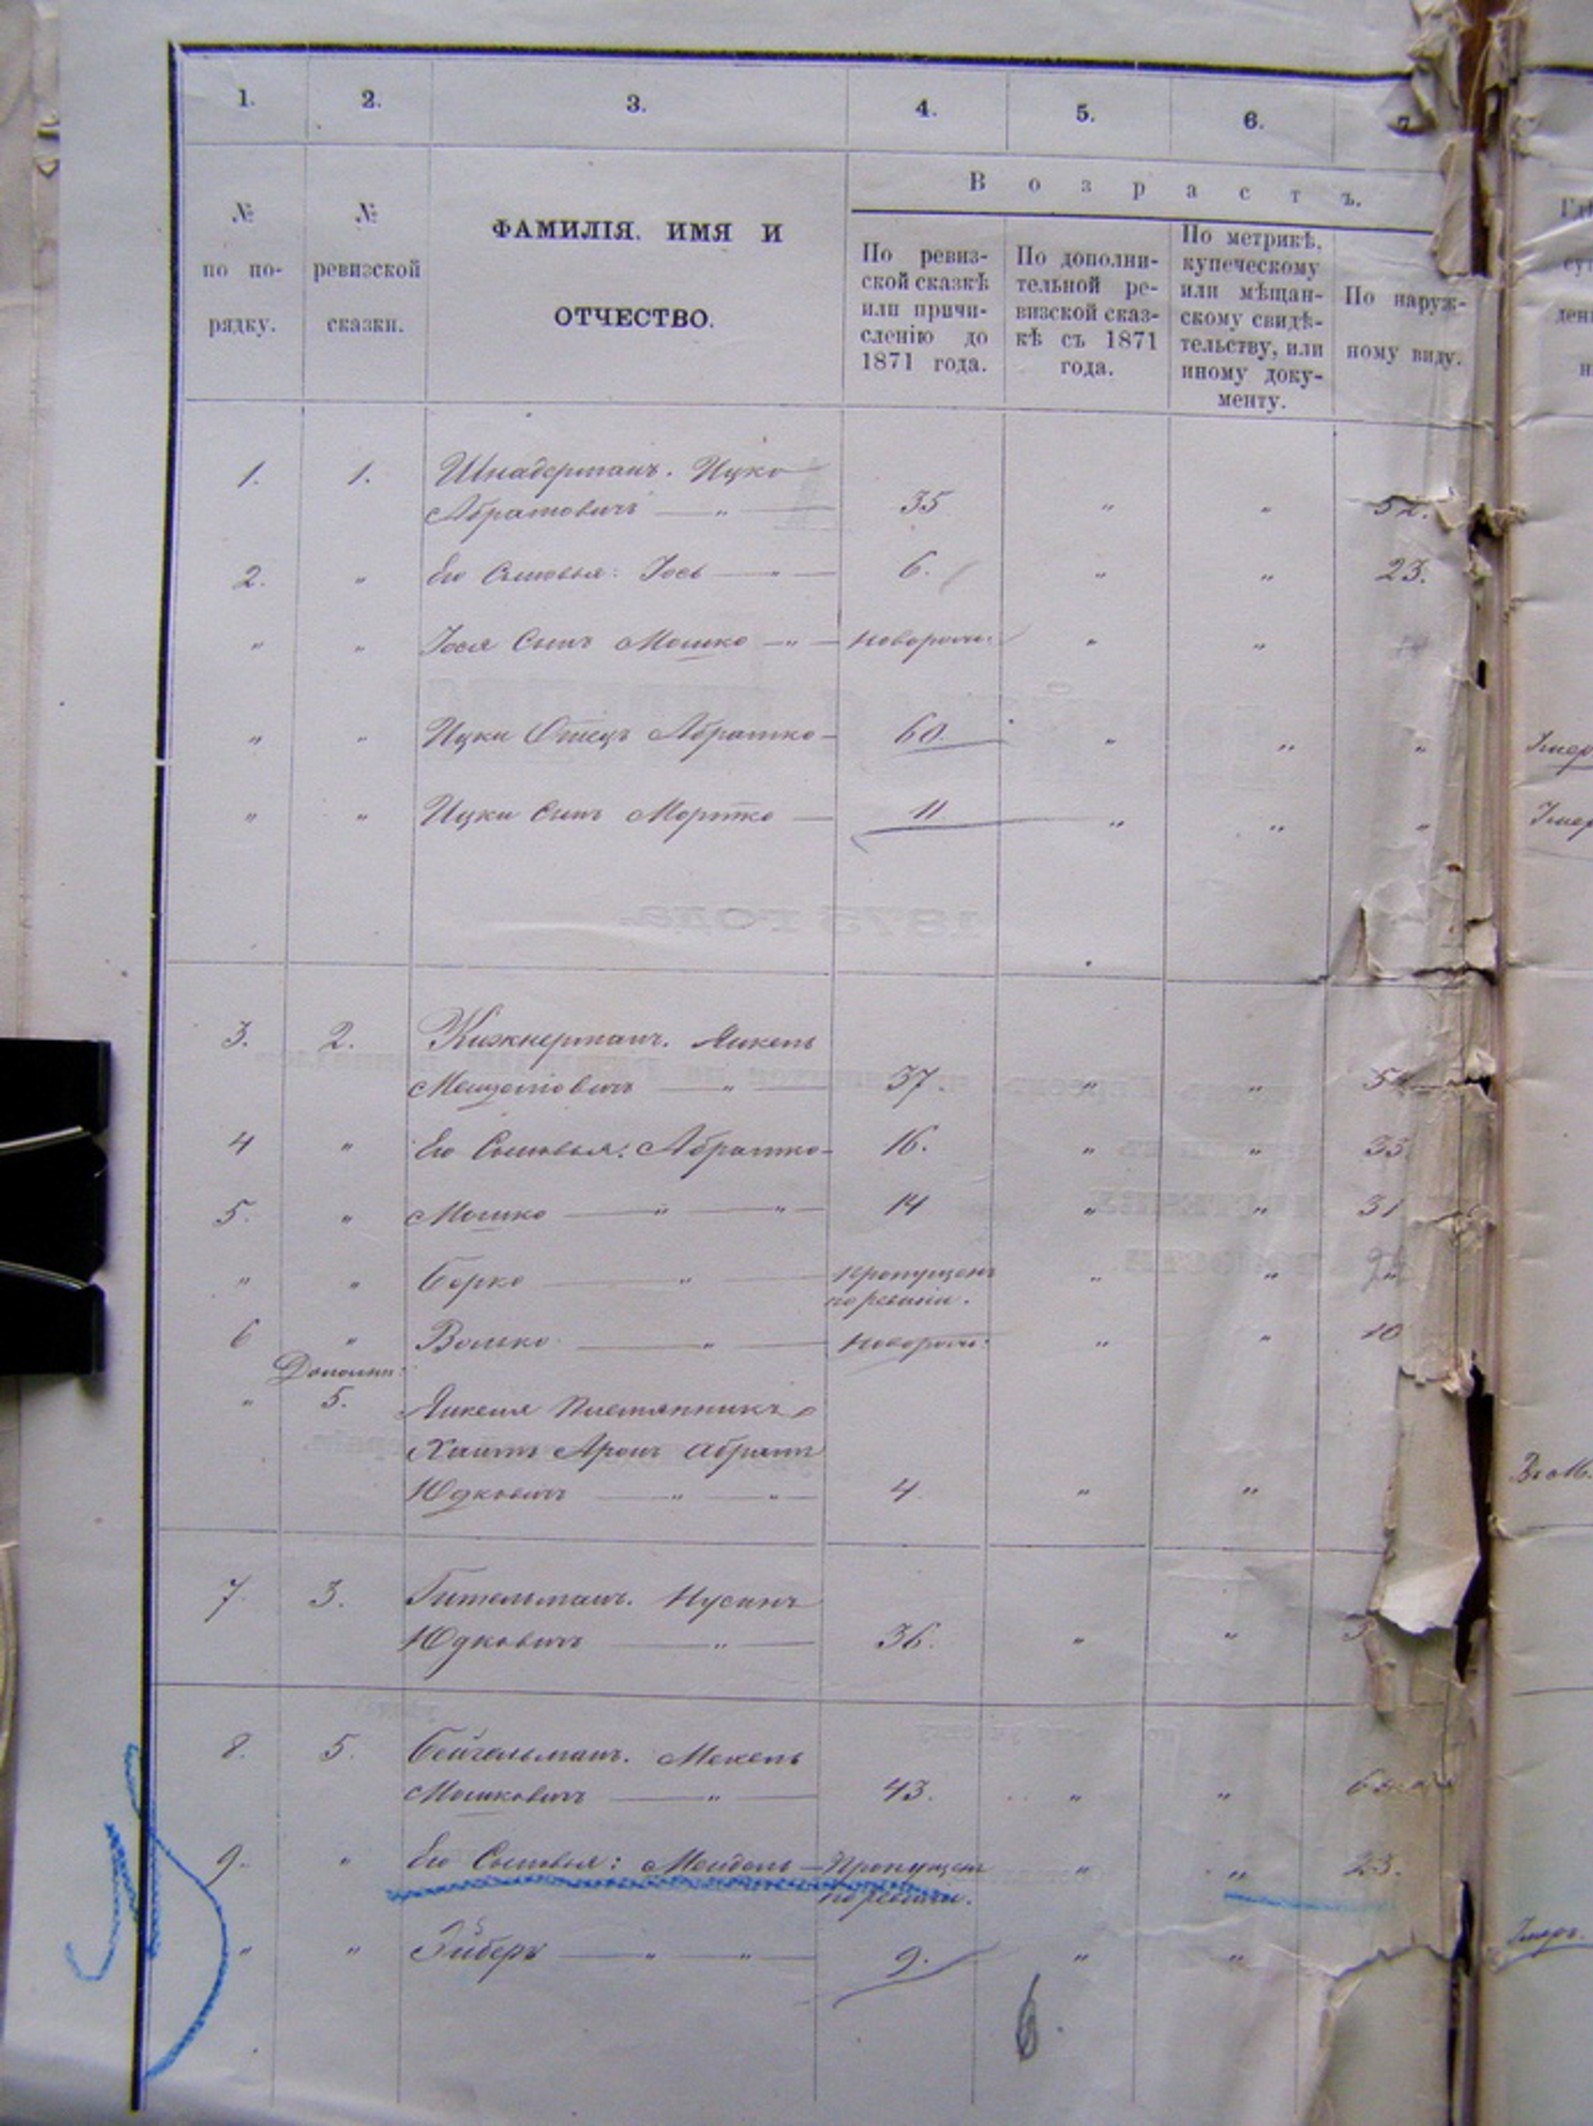 1. 2. 3. 4. 5. 6. 7
№ по по-рядку.
№ ревизской сказки.
ФАМИЛІЯ, ИМЯ И
ОТЧЕСТВО.
Возрастъ.
По ревиз-
ской сказкѣ
или причи-
сленію до
1871 года.
По дополни-
тельной ре-
визской сказ-
кѣ съ 1871
года.
По метрикѣ,
купеческому
или мѣщан-
скому свидѣ-
тельству, или
иному доку-
менту.
По наруж-
ному виду.
1. 1. Шнадерманъ. Ицко
Абрамовичъ — „ — 35 „ „ 52.
2. „ Его Сыновья: Іось — „ — 6. „ „ 23.
„ „ Іося Сынъ Мошко — „ — новорожд: „ „
„ „ Ицки Отецъ Абрамко — 60. „ „ „
„ „ Ицки Сынъ Мортко — 11 „ „ „
3. 2. Кижнерманъ. Янкель
Менделіовичъ — „ — 37. „ „
4 „ Его Сыновья: Абрамко — 16. „ „ 33.
5. „ Мошко — „ — „ — 14 „ „ 31
„ „ Берко — „ — пропущенъ „ „
по ревизіи.
6 „ Волько — „ — новорож: „ „ 10
Дополн:
„ 5. Янкеля племянникъ
Хаимъ Аронъ Абрамъ
Юдковичъ — „ — „ — 4. „ „
7. 3. Гительманъ. Нусинъ
Юдковичъ — „ — 36. „ „
8. 5. Бейгельманъ. Мекель
Мошковичъ — „ — 43. „ „
9. „ Его Сыновья: Мендель — Пропущен „ „ 23.
по ревизіи.
„ „ Эйберъ — „ — „ — 9. „ „
6